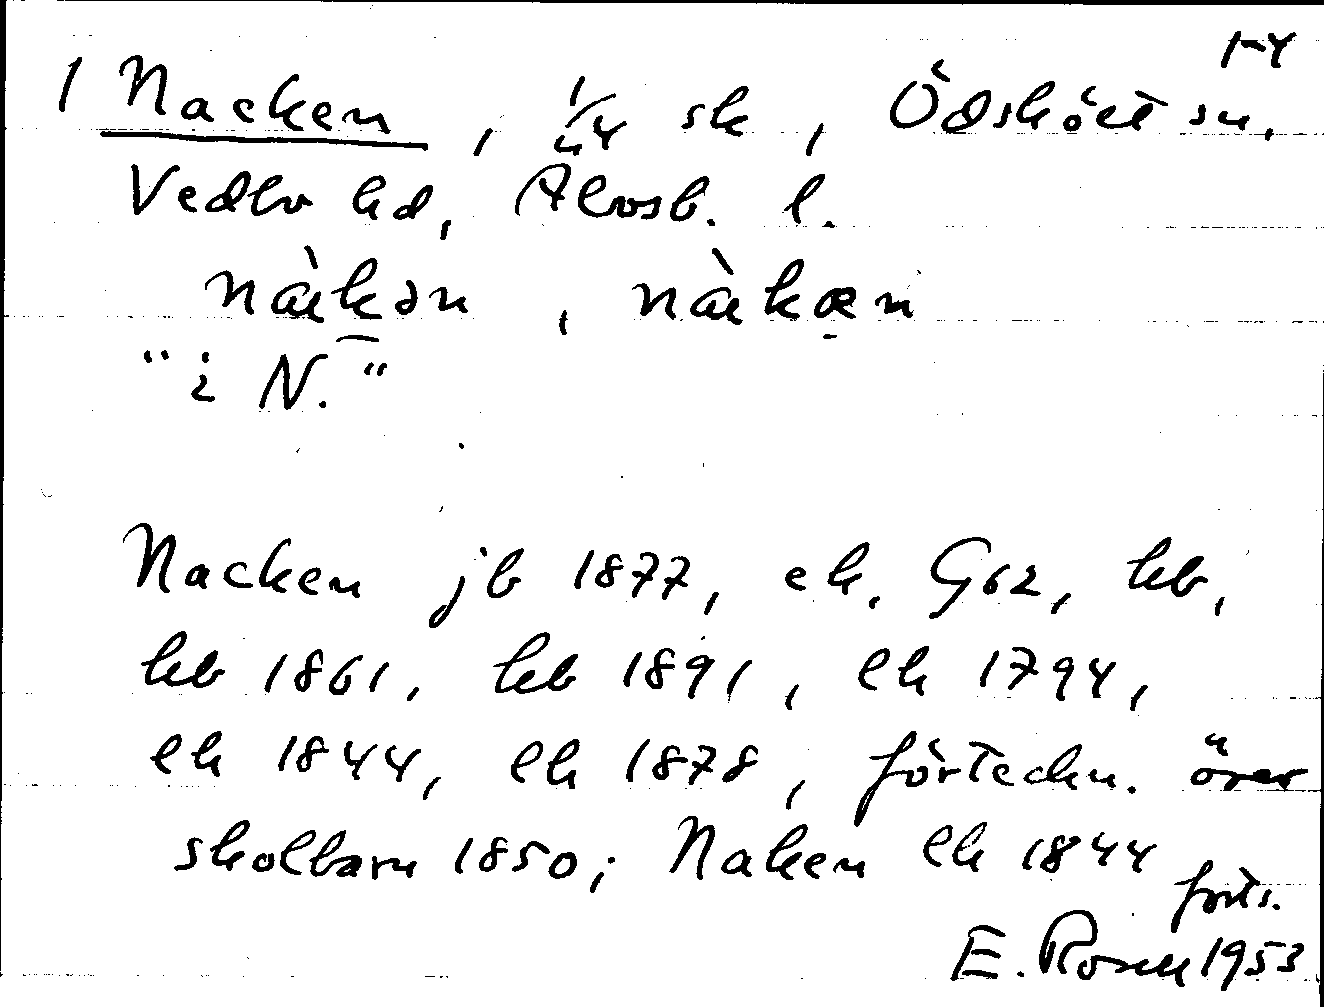 1-4
1 Nacken, 1/24 sk, Ödskölt sn,
Vedbo hd, Älvsb. l.
nàkən, nàkæn
"i N."
Nacken jb 1877, ek. G62, hb,
hb 1861, hb 1891, lh 1794,
lh 1844, lh 1878, förteckn. över
skolbarn 1850; Naken lh 1844
forts.
E. Rosell 1953